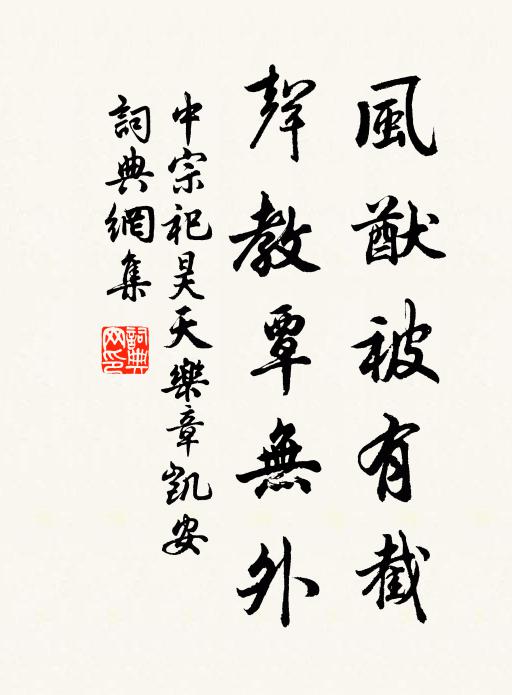 風猷被有截
聲教覃無外
中宗祀昊天樂章凱安
詞典網集
詞典
网印